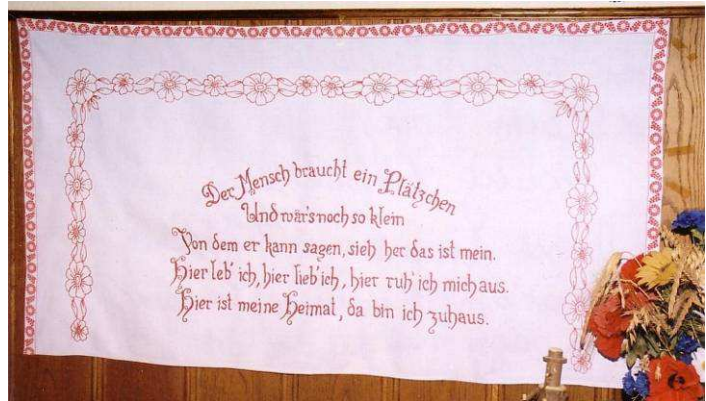 Der Mensch braucht ein Plätzchen
Und wär's noch so klein
Von dem er kann sagen, sieh her das ist mein.
Hier leb' ich, hier lieb' ich, hier ruh' ich mich aus.
Hier ist meine Heimat, da bin ich zuhaus.